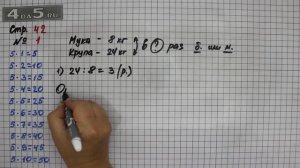 4DA5.RU
Стр. 42
№ 1
5 · 1 = 5
5 · 2 = 10
5 · 3 = 15
5 · 4 = 20
5 · 5 = 25
5 · 6 = 30
5 · 7 = 35
5 · 8 = 40
5 · 9 = 45
5 · 10 = 50
Мука - 8 кг
Крупа - 24 кг
в ? раз б. или м.
1) 24 : 8 = 3 (р.)
О